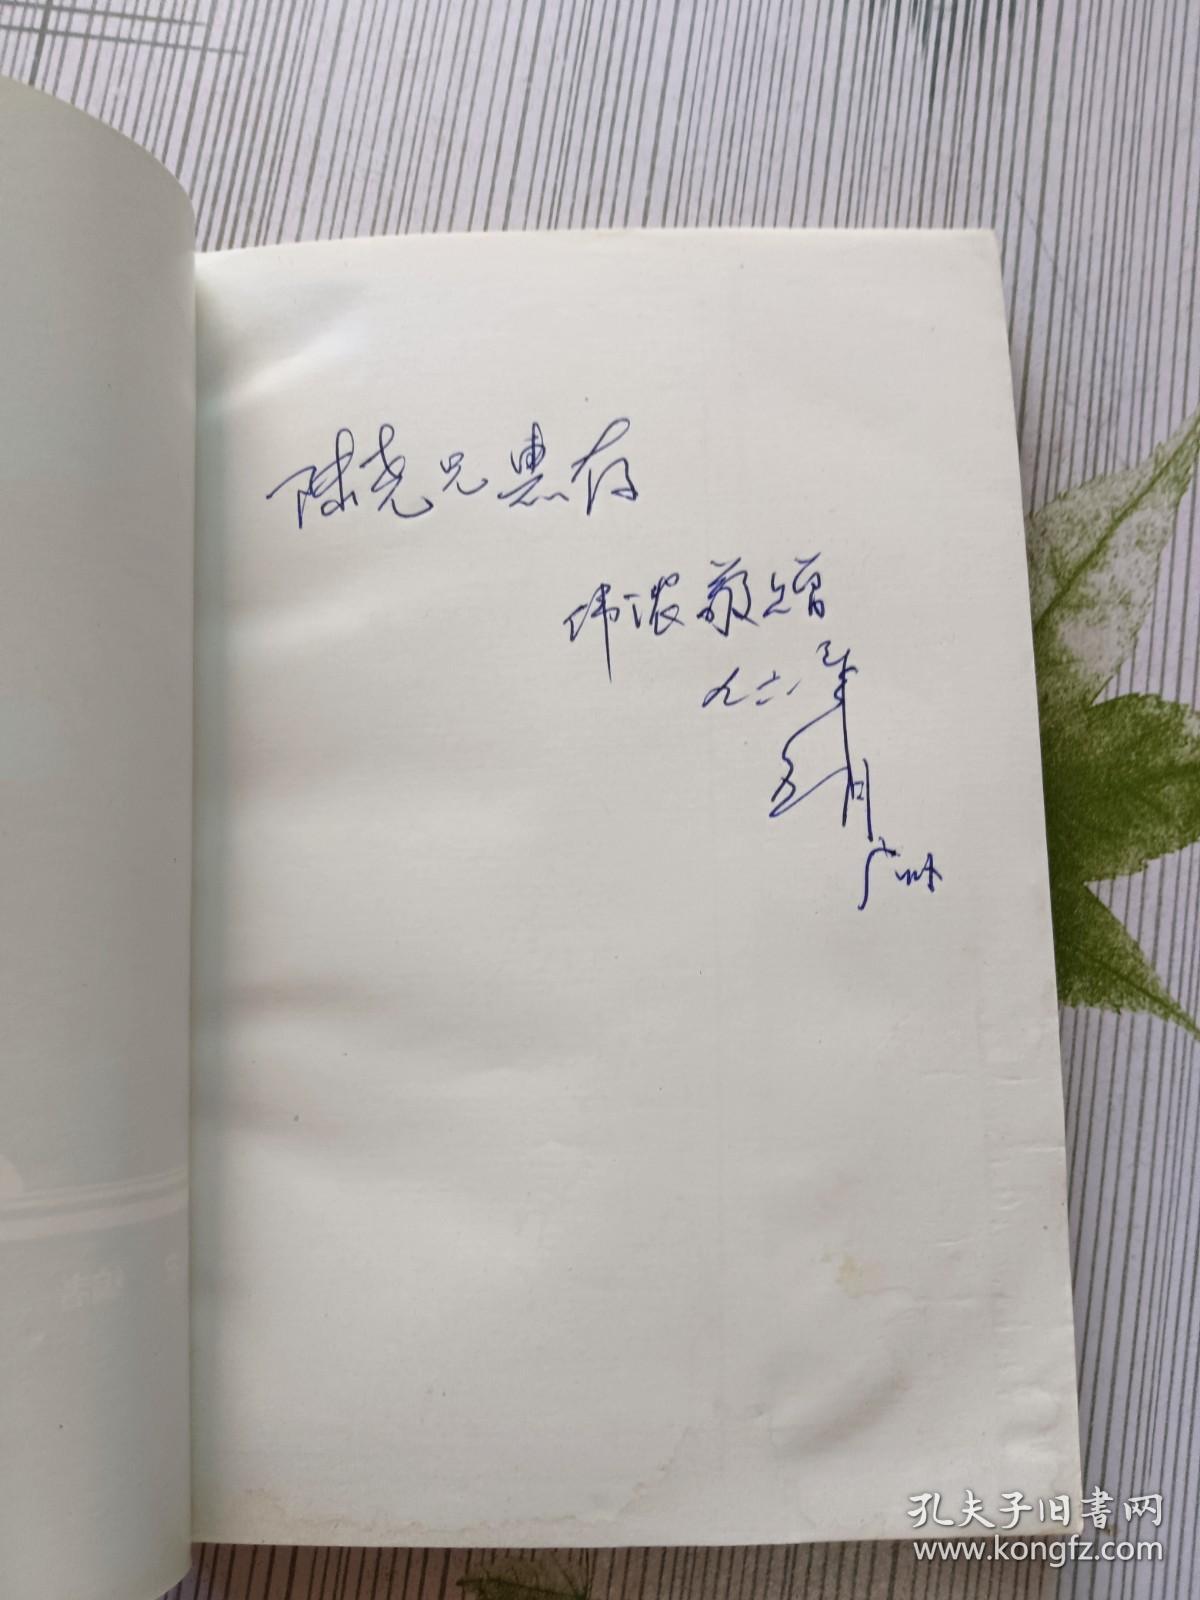 陈尧兄惠存
伟浓敬赠
九六年
五月
广州
孔夫子旧书网
www.kongfz.com